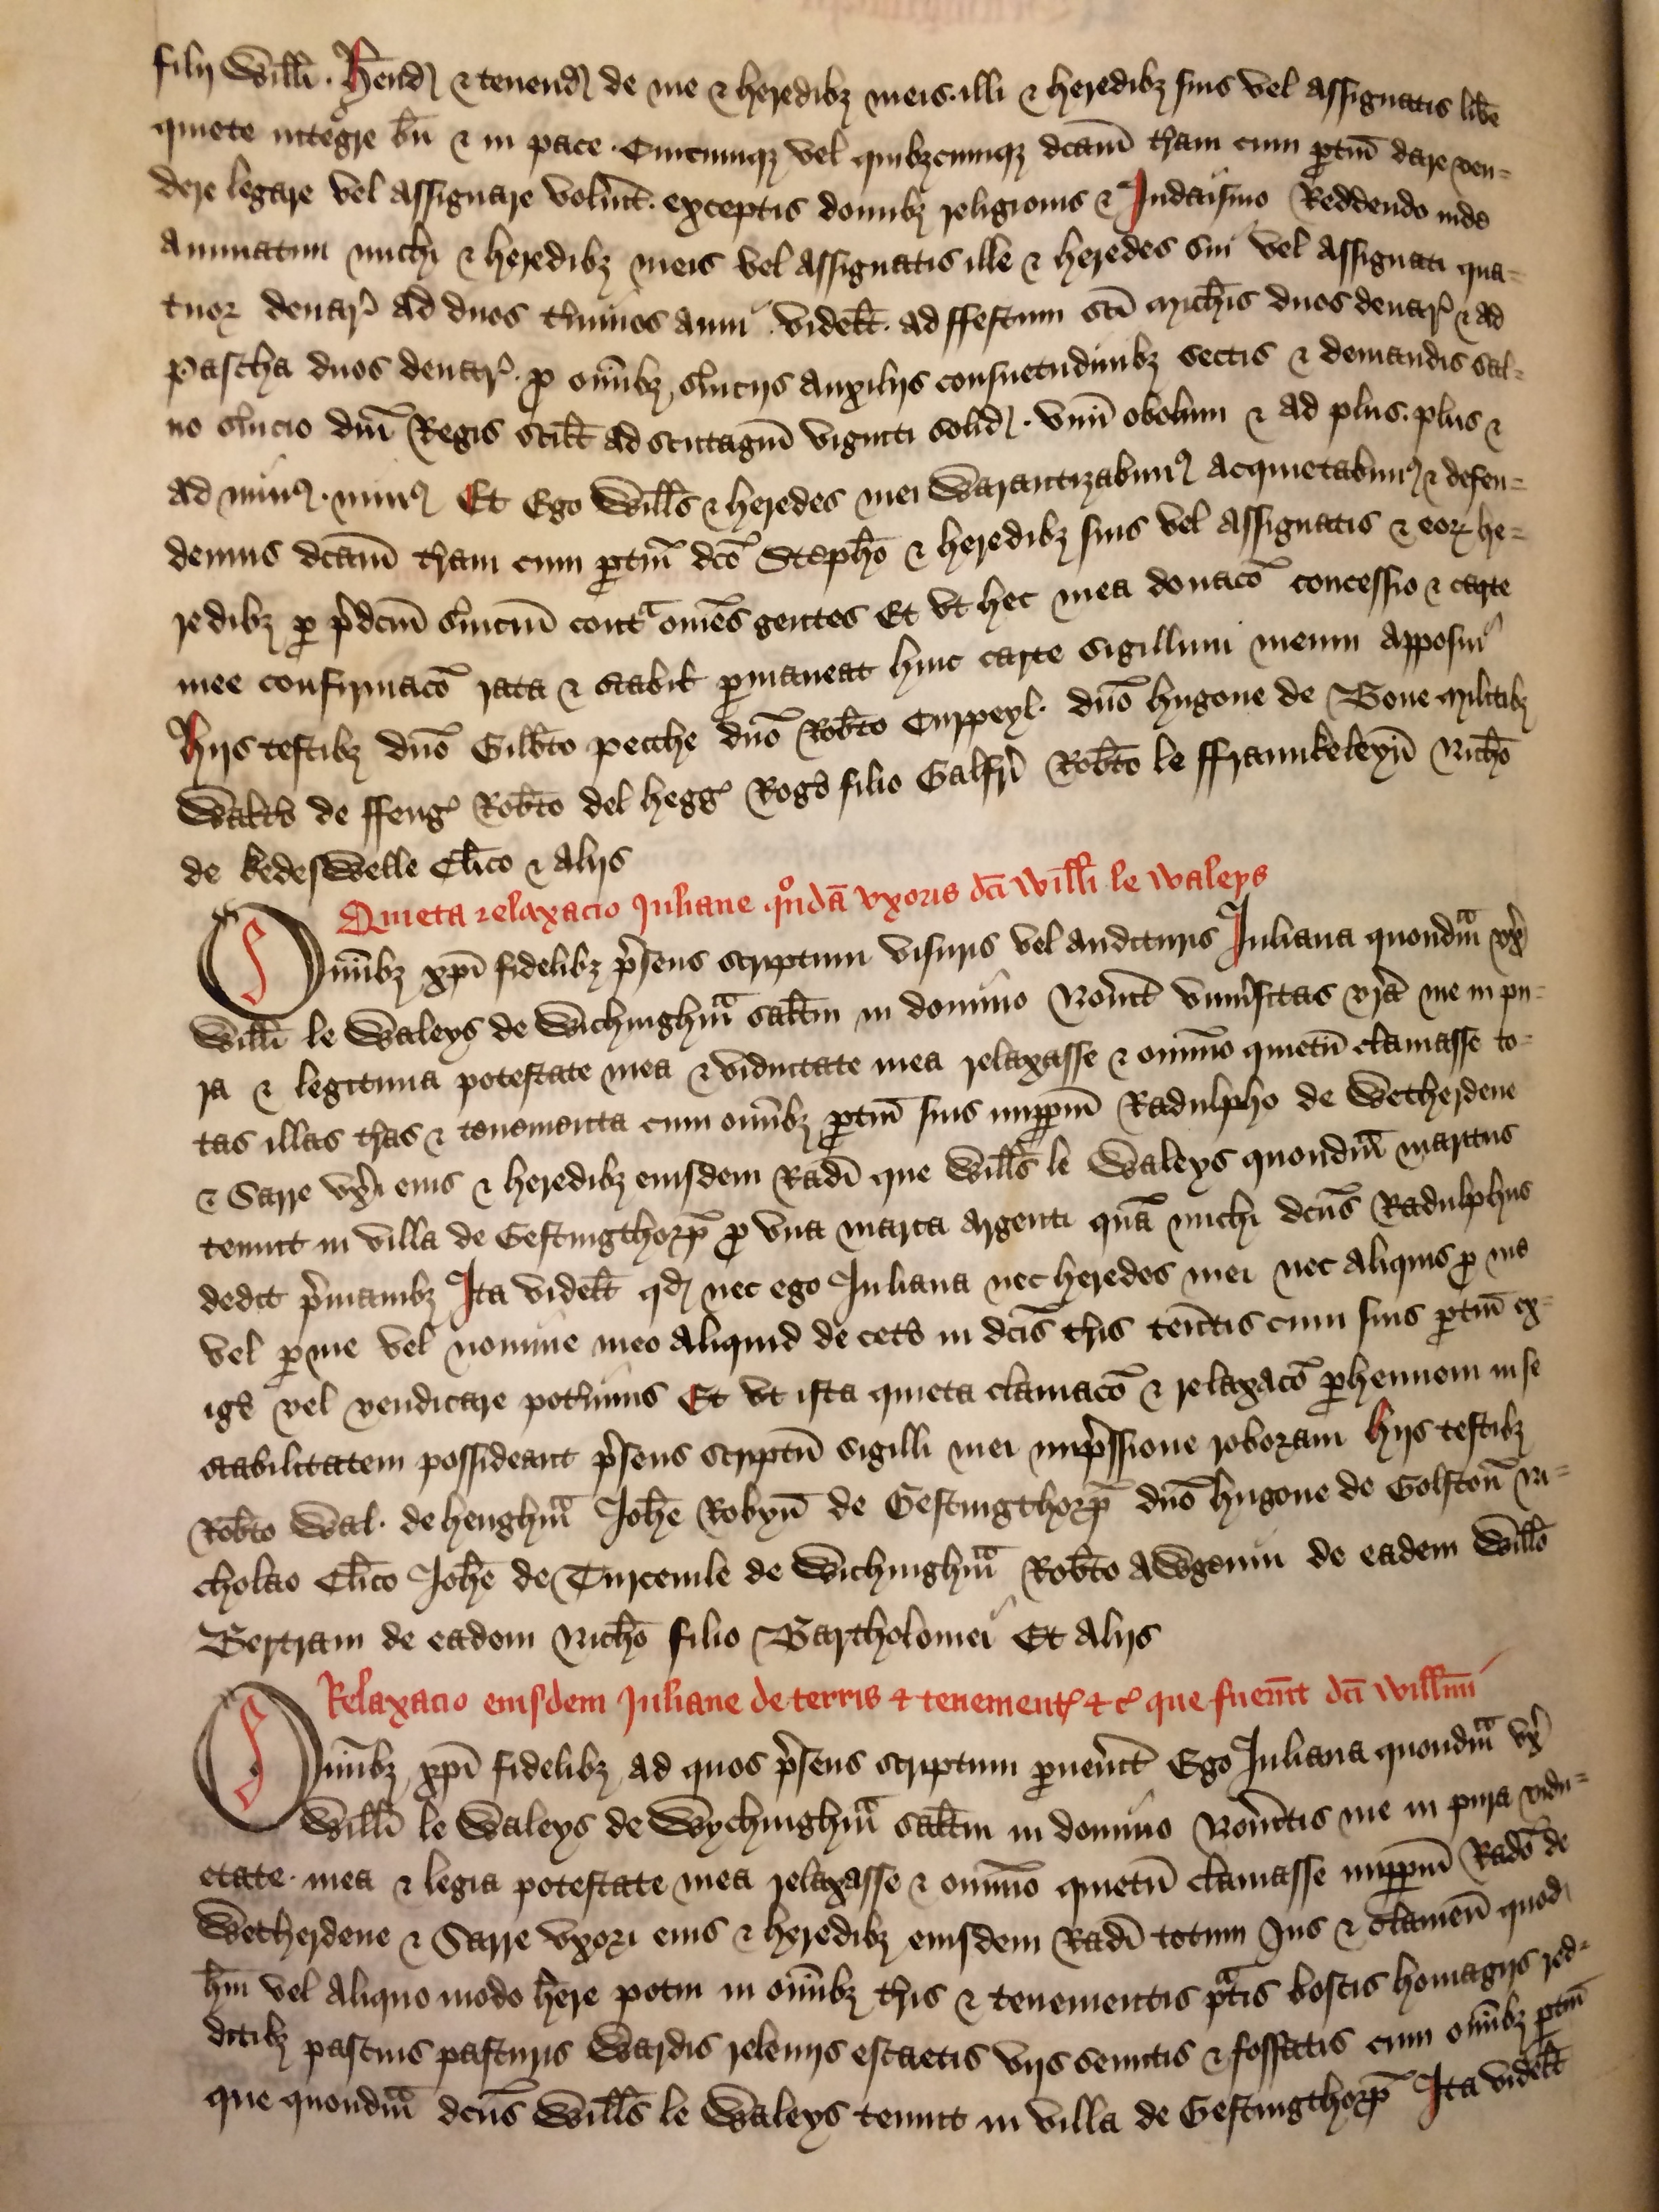 filij Will̄i. H̄end̛ & tenend̛ de me & heredibȝ meis. illi & heredibȝ suis vel assignatis lib̄e
quiete integre bn̄ & in pace. Cuicumqȝ vel quibȝcumqȝ dcām t̄ram cum p̱tin̄ dare ven=
dere legare vel assignare volūit. exceptis domibȝ religionis & Iudaismo Reddendo inde
annuatim michi & heredibȝ meis vel assignatis ille & heredes sui vel assignati qua=
tuor denar̛ ad duos t̄minos anni. videlt̄. ad ffestum scī Mich̄is duos denar̛ & ad
pascha duos denar̛. p̱ om̄ibȝ s̄uicijs auxilijs consuetudinibȝ sectis & demandis sal=
uo s̄uicio dn̄i Regis scilt̄ ad scutagiū viginti solid̛. vnū obolum & ad plus. plus &
ad min̛. min̛ Et Ego Will̄s & heredes mei Warantizabim̛ acquietabim̛ & defen=
demus dcām t̄ram cum p̱tin̄ dcō Steph̄o & heredibȝ suis vel assignatis & eorꝝ he=
redibȝ p̱ p̄dcm̄ s̄uiciū contᵃ om̄es gentes Et vt hec mea donacō concessio & carte
mee confirmacō rata & stabil̄ p̱maneat huic carte sigillum meum apposui
Hijs testibȝ dn̄o Gilb̄to pecche dn̄o Rob̄to Curpeyl. dn̄o hugone de Goue Militibȝ
Walt̄o de ffeng̛ Rob̄to del hegg̛ Roḡo filio Galfr̄i Rob̄to le ffraunkeleyn̄ Nich̄o
de kedeswelle Cl̄ico & alijs
Quieta relaxacio Iuliane qᵒndā vxoris dcī Will̄i le Waleys
Om̄ibȝ xp̄i fidelibȝ p̄sens scriptum visuris vel audituris Iuliana quondm̄ vx̄
Will̄i le Waleys de Wichinghm̄ salt̄m in domino Noūit vniūsitas vr̄a me in pu=
ra & legitima potestate mea & viduitate mea relaxasse & om̄ino quietū clamasse to=
tas illas t̄ras & tenementa cum om̄ibȝ p̱tin̄ suis imp̱pm̄ Radulpho de Wetherdene
& Sarre vx̄i eius & heredibȝ eiusdem Rad̄i que Will̄s le Waleys quondm̄ maritus
tenuit in villa de Gestingthorp̄ p̱ vna marca argenti quā michi dcūs Radulphus
dedit p̄manibȝ Ita videlt̄ qd̛ nec ego Iuliana nec heredes mei nec aliquis p̱ me
vel p̱ me vel nomine meo aliquid de cet̄o in dcīs t̄ris ten̄tis cum suis p̱tin̄ ex=
iḡe vel vendicare pot̄imus Et vt ista quieta clamacō & relaxacō p̱hennem in se
stabilitatem possideant p̄sens scriptū sigilli mei imp̄ssione roboraui Hijs testibȝ
Rob̄to Wal. de henghm̄ Joh̄e Robyn̄ de Gestingthorp̄ dn̄o hugone de Golston̄ Ni=
cholao Cl̄ico Joh̄e de Turcemle de Wichinghm̄ Rob̄to Awgenin de eadem Will̄o
Bertram de eadem Nich̄o filio Bartholomei Et Alijs
Relaxacio eiusdem Iuliane de terris & tenement̛ &c̛ que fuer̄t dcī Will̄mi
Om̄ibȝ xp̄i fidelibȝ ad quos p̄sens scriptum p̱uen̄it Ego Iuliana quondm̄ vx̄
Will̄i le Waleys de Wychinghm̄ salt̄m in domino Noūitis me in pura vidu=
etate. mea & legia potestate mea relaxasse & om̄ino quietū clamasse imp̱pm̄ Rad̄o de
Wetherdene & Sarre vxori eius & heredibȝ eiusdem Rad̄i totum Jus & clameū quod
h̄ui vel aliquo modo h̄ere potui in om̄ibȝ t̄ris & tenementis pᵃtis boscis homagijs red=
ditibȝ pascuis pasturis Wardis releuijs escaetis vijs semitis & fossatis cum om̄ibȝ p̱tin̄
que quondm̄ dcūs Will̄s le Waleys tenuit in villa de Gestingthorp̄ Ita videlt̄